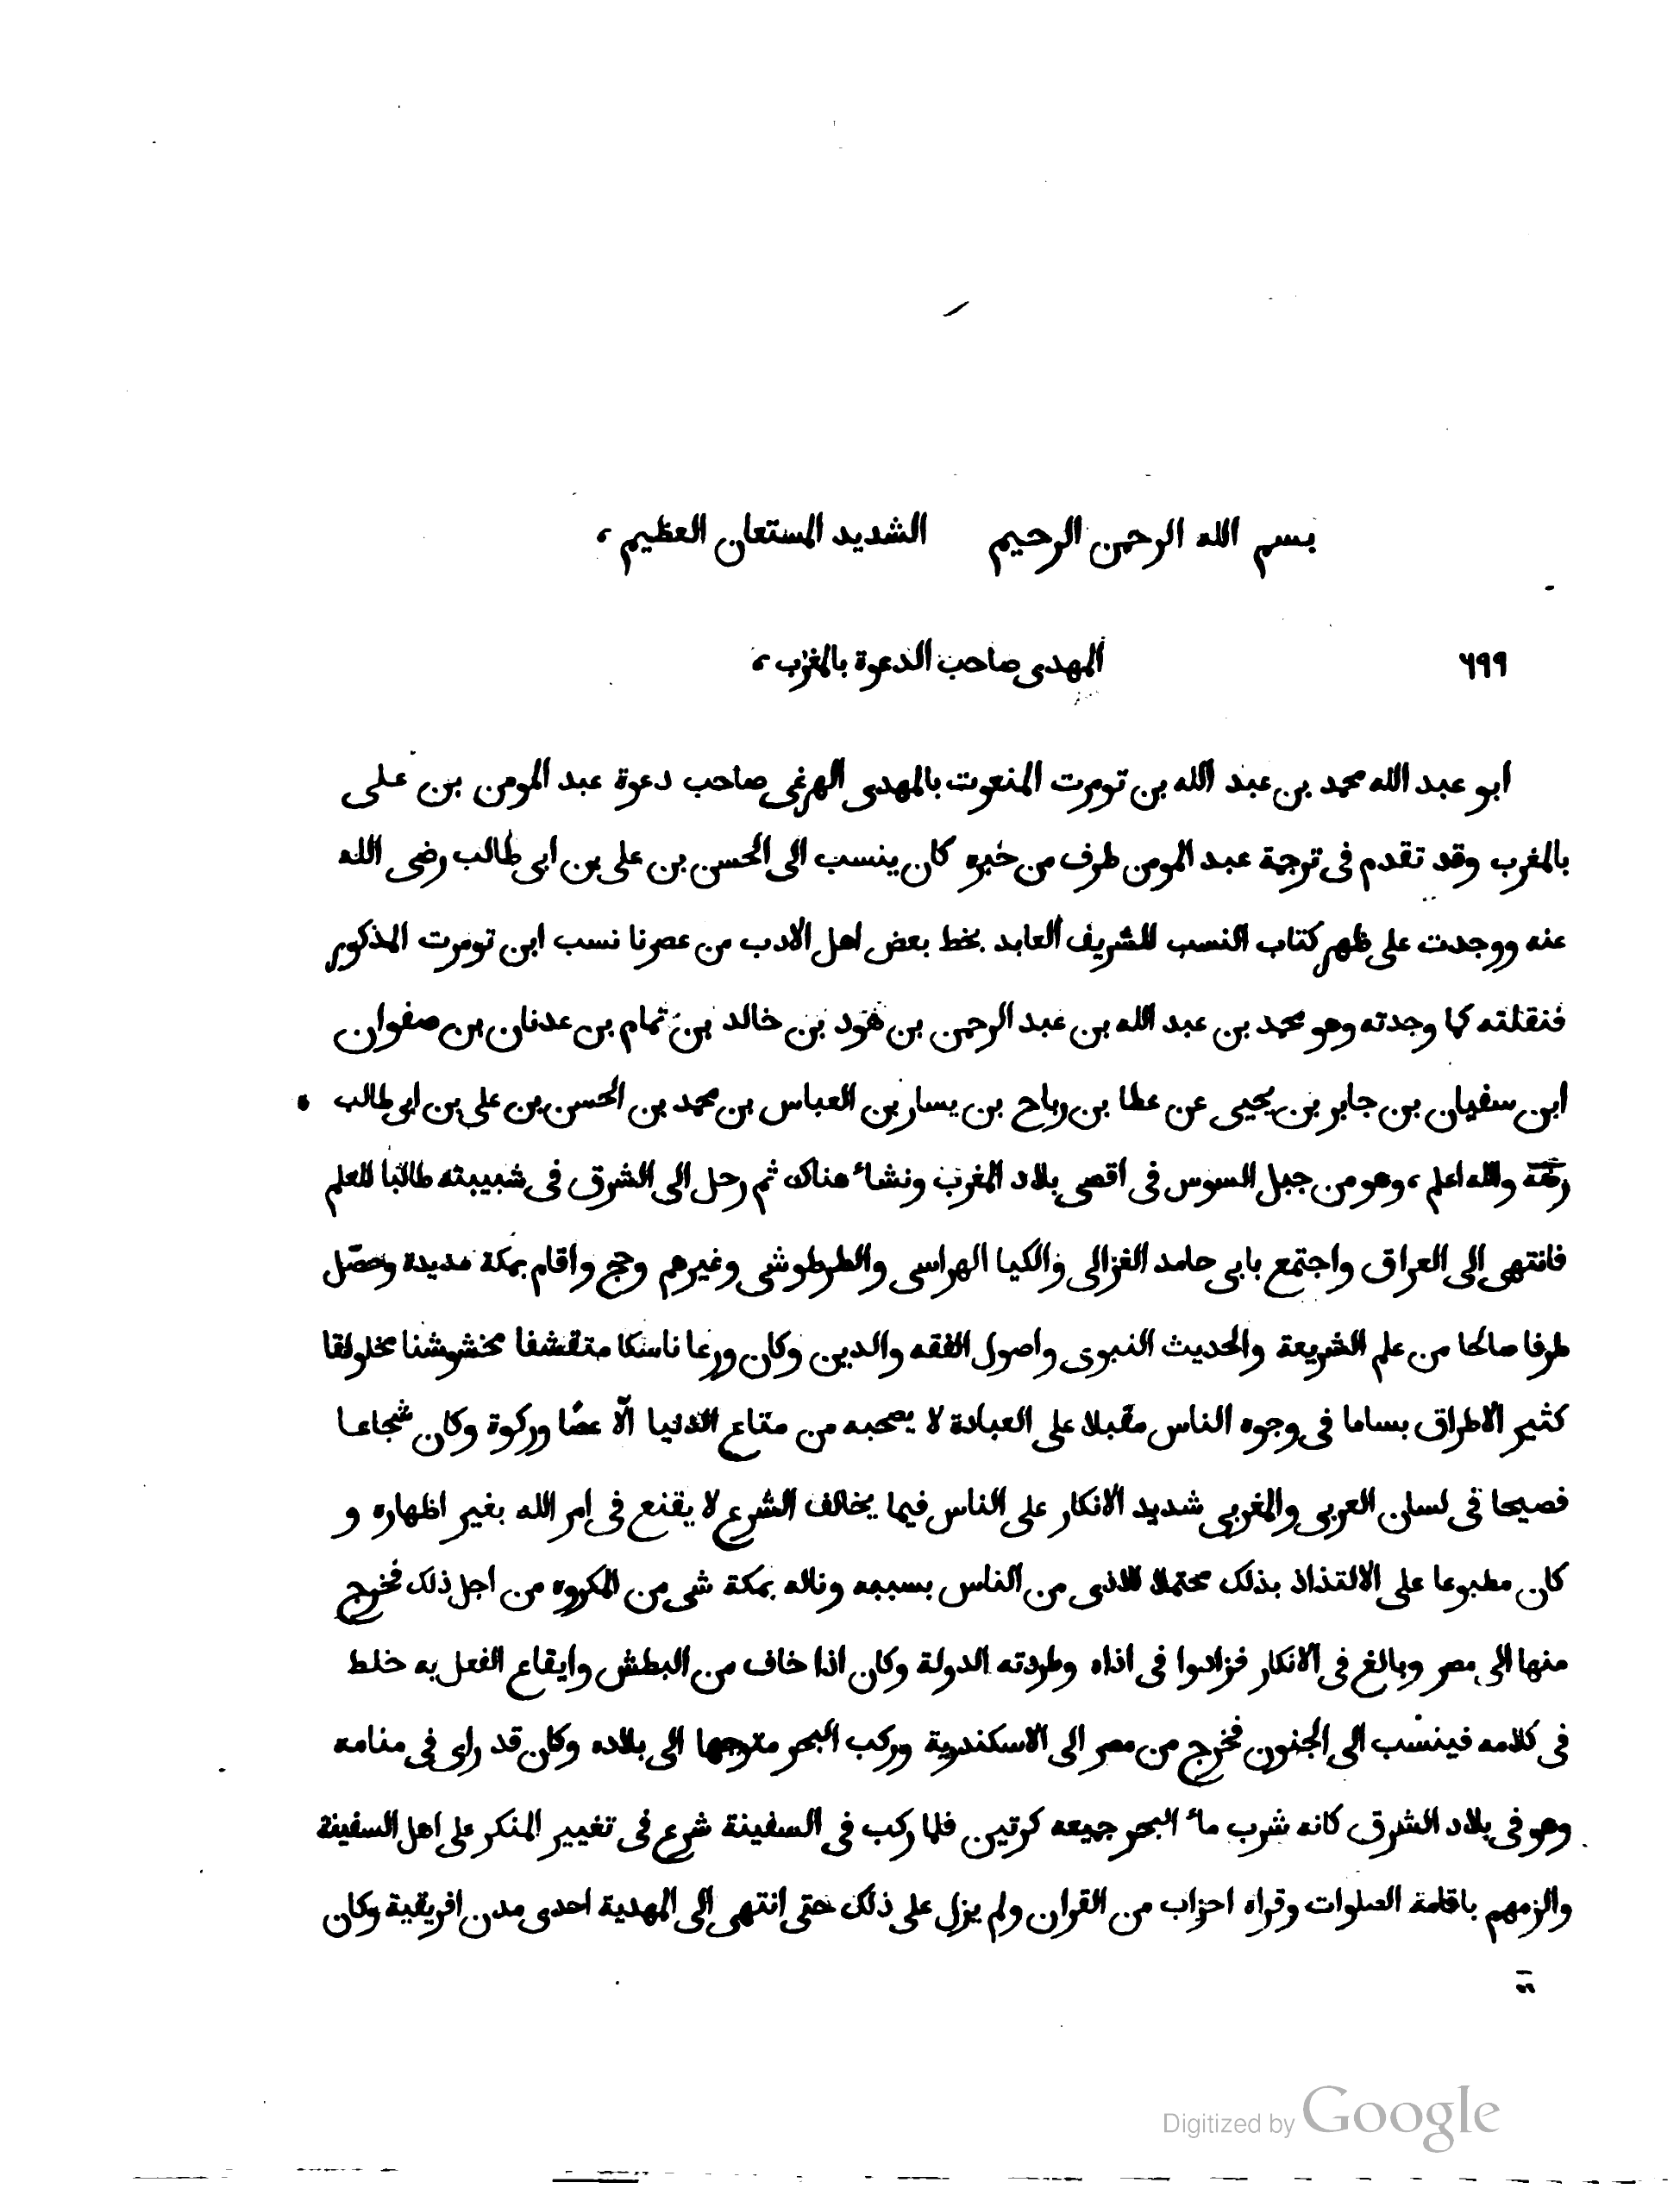 بسم الله الرحمن الرحيم الشديد المستعان العظيم،
٦٩٩ المهدى صاحب الدعوة بالمغرب،
ابو عبد الله محمد بن عبد الله بن تومرت المنعوت بالمهدى الهرغى صاحب دعوة عبد المومن بن على
بالمغرب وقد تقدم فى ترجمة عبد المومن طرف من خبره كان ينسب الى الحسن بن على بن ابى طالب رضى الله
عنه ووجدت على ظهر كتاب النسب للشريف العابد بخط بعض اهل الادب من عصرنا نسب ابن تومرت المذكور
فنقلته كما وجدته وهو محمد بن عبد الله بن عبد الرحمن بن هود بن خالد بن تمام بن عدنان بن صفوان
ابن سفيان بن جابر بن يحيى عن عطا بن رباح بن يسار بن العباس بن محمد بن الحسن بن على بن ابى طالب
والله اعلم، وهو من جبل السوس فى اقصى بلاد المغرب ونشاء هناك ثم رحل الى الشرق فى شبيبته طالبا للعلم
فانتهى الى العراق واجتمع بابى حامد الغزالى والكيا الهراسى والطرطوشى وغيرهم وحج واقام بمكة مديدة وحصّل
طرفا صالحا من علم الشريعة والحديث النبوى واصول الفقه والدين وكان ورعا ناسكا متقشفا مخشوشنا مخلولقا
كثير الاطراق بساما فى وجوه الناس مقبلا على العبادة لا يصحبه من متاع الدنيا الّا عصًا وركوة وكان شجاعا
فصيحا فى لسان العربى والمغربى شديد الانكار على الناس فيما يخالف الشرع لا يقنع فى امر الله بغير اظهاره و
كان مطبوعا على الالتذاذ بذلك محتملا للاذى من الناس بسببه وناله بمكة شى من المكروه من اجل ذلك فخرج
منها الى مصر وبالغ فى الانكار فزادوا فى اذاه وطردته الدولة وكان اذا خاف من البطش وايقاع الفعل به خلط
فى كلامه فينسب الى الجنون فخرج من مصر الى الاسكندرية وركب البحر متوجها الى بلاده وكان قد راى فى منامه
وهو فى بلاد الشرق كانه شرب ماء البحر جميعه كرتين فلما ركب فى السفينة شرع فى تغيير المنكر على اهل السفينة
والزمهم باقامة الصلوات وقراه احزاب من القران ولم يزل على ذلك حتى انتهى الى المهدية احدى مدن افريقية وكان
Digitized by Google